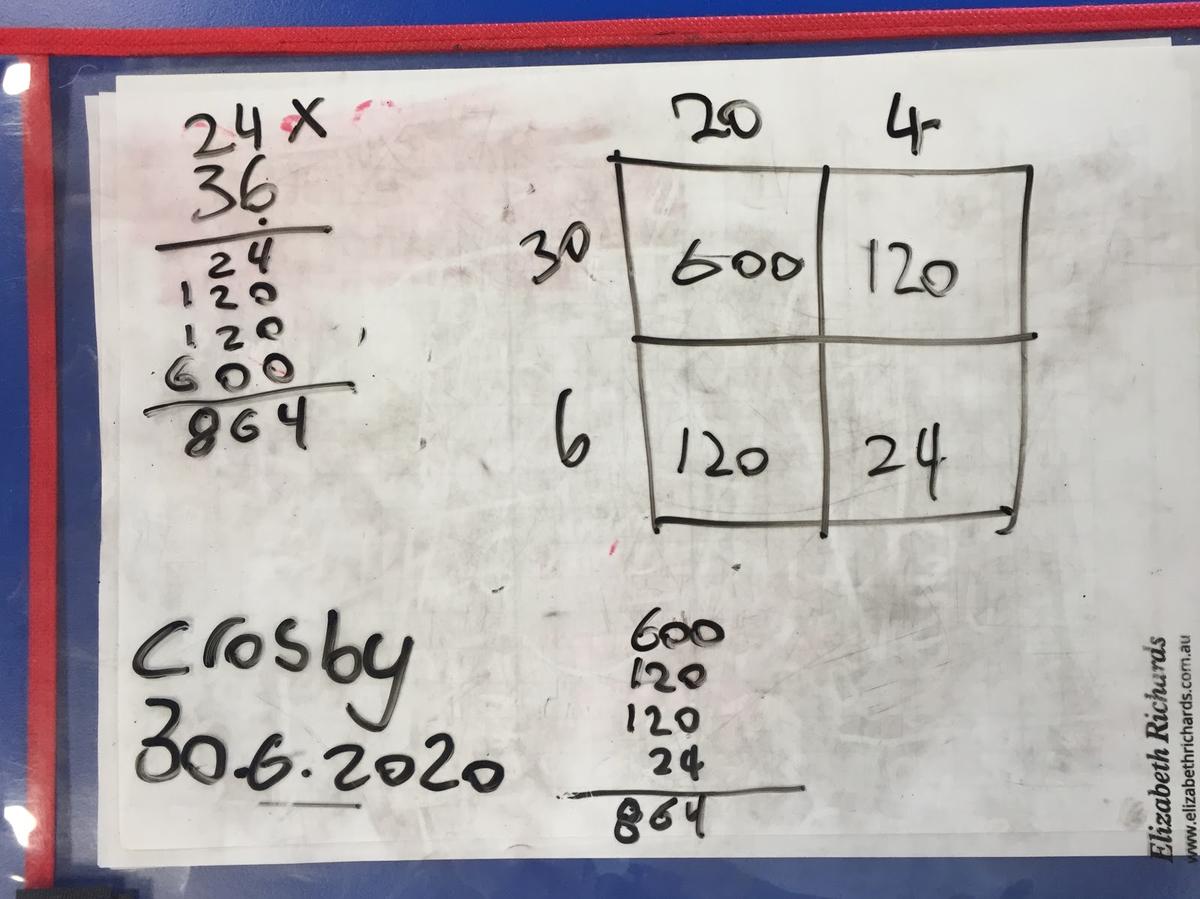 24 x
36
24
120
120
600
864
20 4
30 600 120
6 120 24
crosby
30.6.2020
600
120
120
24
864
Elizabeth Richards
www.elizabethrichards.com.au